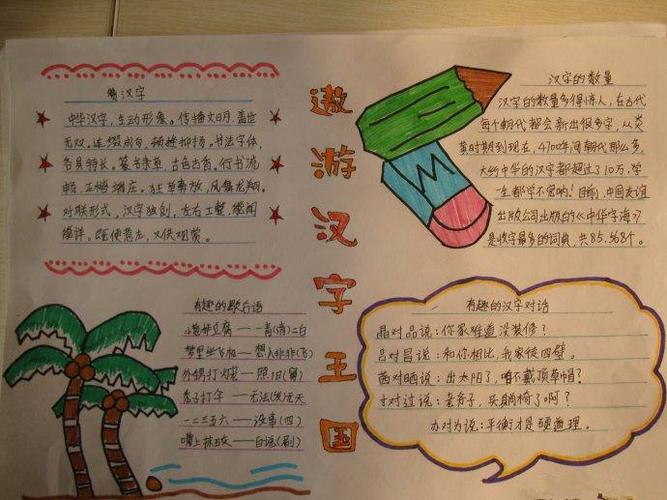 赞汉字
中华汉字，生动形象。传播文明，盖世
无双。连缀成句，抑扬。书法字体，
各具特长。篆书隶草，古色古香。行书流
畅，正楷端庄。狂草奔放，凤舞龙翔。
对联形式，汉字独创，左右工整，
遨游汉字王国
汉字的数量
汉字的数量多得惊人，在古代
每个朝代都会新出很多字，从炎
黄时期到现在，4700年间朝代那么多，
大约中华的汉字都超过了10万，学
一生都学不完哟！目前，中国友谊
出版公司出版的《中华字海》
是收字最多的词典，共85.568个。
有趣的歇后语
小葱拌豆腐——一青(清)二白
梦里坐飞机——想入非非(飞)
外甥打灯笼——照旧(舅)
秃子打伞——无法(发)无天
一二三五六——没事(四)
嘴上抹石灰——白说(刷)
有趣的汉字对话
晶对品说：你家难道没装修？
吕对昌说：和你相比，我家徒四壁。
茜对晒说：出太阳了，咱不戴顶草帽？
寸对过说：老爷子，买躺椅了啊？
办对为说：平衡才是硬道理。